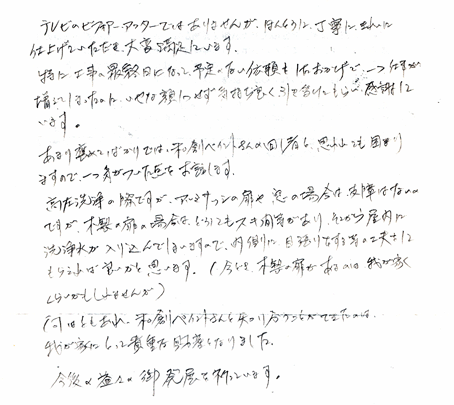 テレビのビフォーアフターではありませんが、ほんとうに、丁寧に、きれいに
仕上げていただき、大変満足しています。
特に工事の最終日になって、予定のない依頼も 一つ仕事が
増えてしまったのに、いやな顔一つせず気持ち良く引き受けてもらい、感謝して
います。
あまり褒めてばかりでは、 創ペイントさんの回し者と、思われても困り
ますので、一つ気がついた点をお話します。
高圧洗浄の際ですが、アルミサッシの扉や窓の場合は支障はないの
ですが、木製の扉の場合は、どうしてもスキ間等があり、そこから屋内に
洗浄水が入り込んでしまいますので、外側に目張りをする等の工夫をして
もらえれば良いかと思います。(今どき、木製の扉があるのは我が家
くらいかもしれませんが)
何はともあれ、 創ペイントさんと知り合うことができたのは、
我が家にとって貴重な財産となりました。
今後の益々の御発展を祈っています。